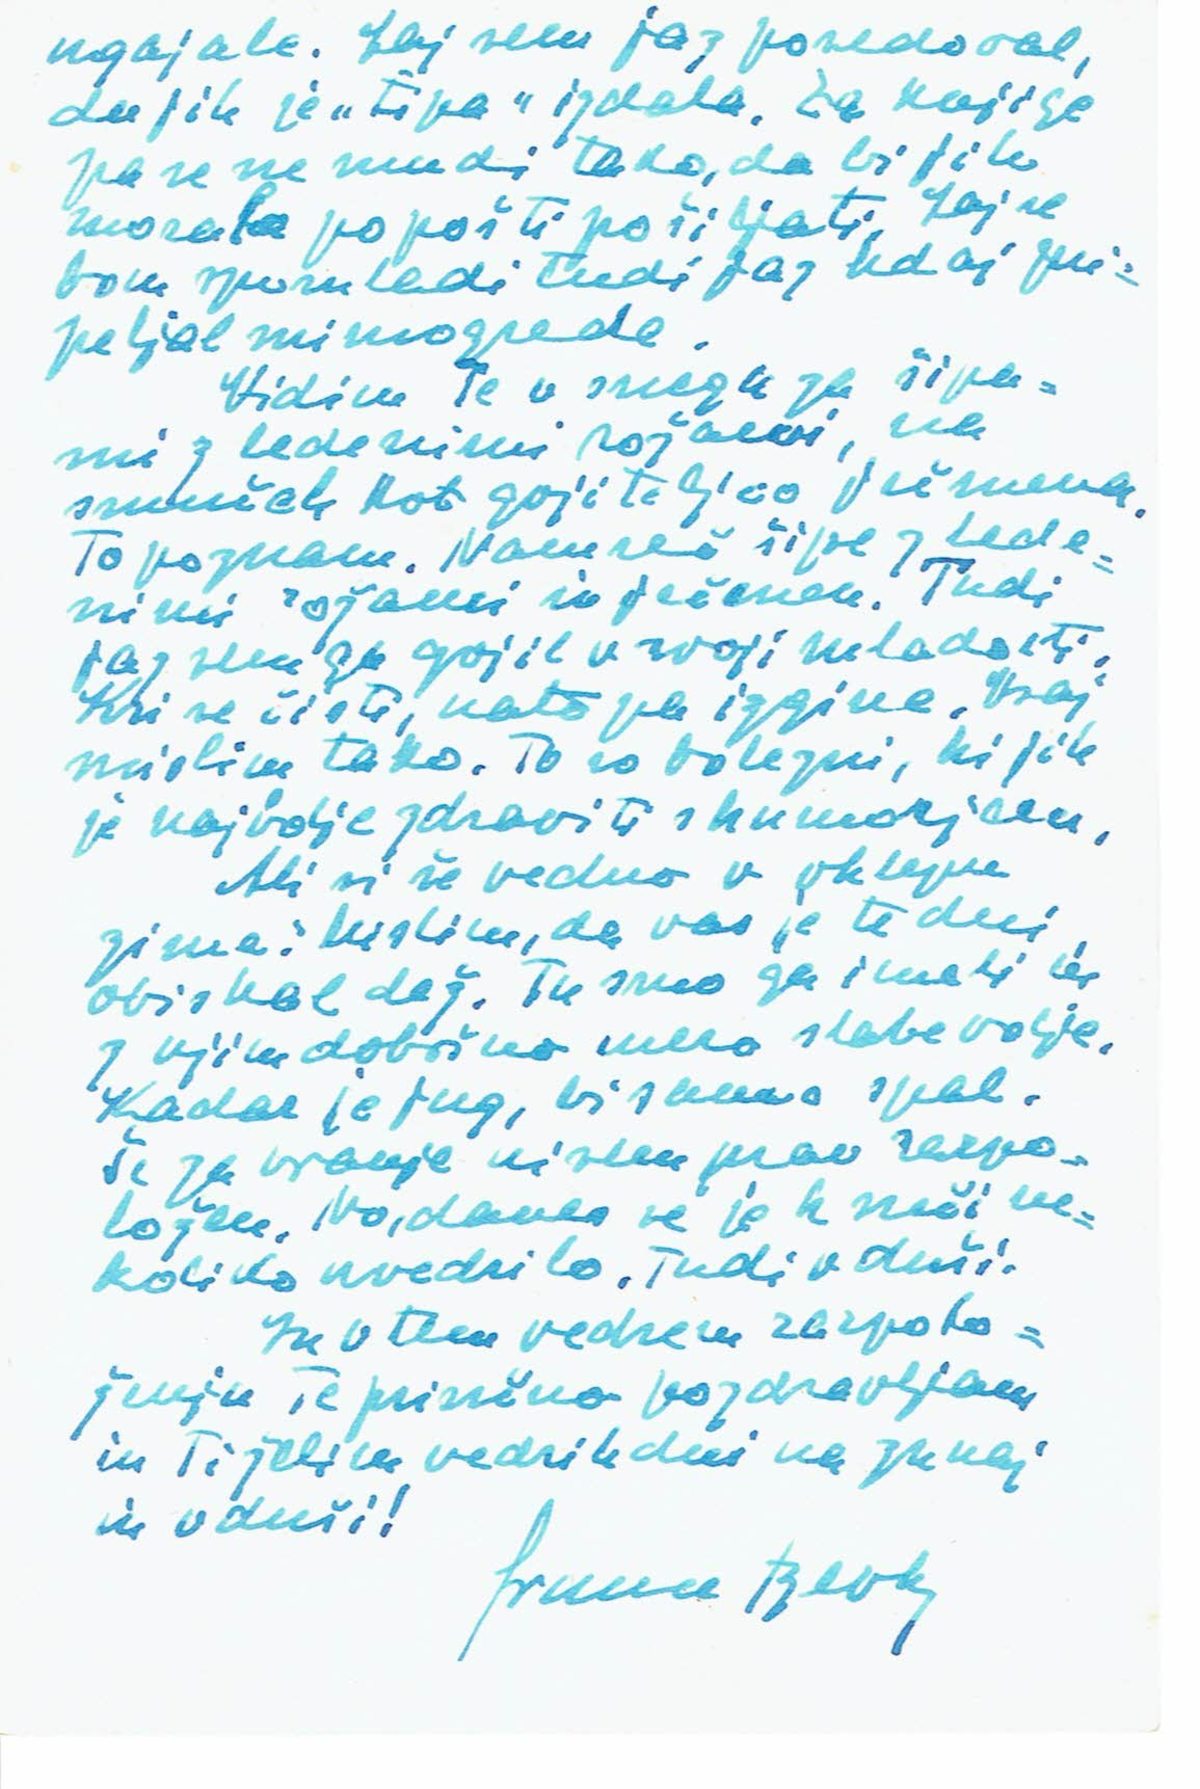 ugajale. Saj sem jaz posredoval,
da jih je "Lipa" izdala. Za knjige
pa se ne mudi tako, da bi jih
morala po pošti pošiljati. Saj se
bom spomladi tudi jaz kdaj pri=
peljal mimogrede.
Vidim Te v snegu za šipa=
mi z ledenimi rožami, na
smučeh kot gojiteljico ječmena.
To poznam. Namreč šipe z lede=
nimi rožami in ječmen. Tudi
jaz sem ga gojil v svoji mladosti.
Kri se čisti, nato pa izgine. Vsaj
mislim tako. To so bolezni, ki jih
je najbolje zdraviti s humorjem.
Ali si še vedno v oklepu
zime? Mislim, da vas je te dni
obiskal dež. Tu smo ga imeli in
z njim dobršno mero slabe volje.
Kadar je jug, bi samo spal.
Še za branje nisem prav razpo=
ložen. No, danes se je k sreči ne=
koliko zvedrilo. Tudi v duši.
In v tem vedrem razpolo=
ženju Te prisrčno pozdravljam
in Ti želim vedrih dni na zunaj
in v duši!
France Bevk